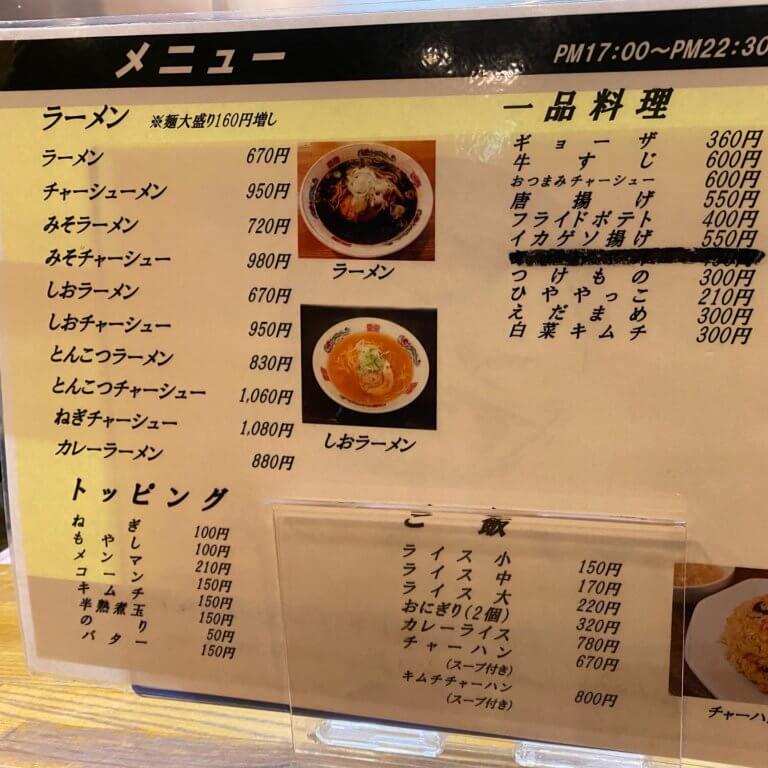 メニュー
PM17:00〜PM22:30
ラーメン ※麺大盛り160円増し
ラーメン 670円
チャーシューメン 950円
みそラーメン 720円
みそチャーシュー 980円
しおラーメン 670円
しおチャーシュー 950円
とんこつラーメン 830円
とんこつチャーシュー 1,060円
ねぎチャーシュー 1,080円
カレーラーメン 880円
ラーメン
しおラーメン
トッピング
ねぎ 100円
もやし 100円
メンマ 210円
コーン 150円
キムチ 150円
半熟煮玉 150円
のり 50円
バター 150円
一品料理
ギョーザ 360円
牛すじ 600円
おつまみチャーシュー 600円
唐揚げ 550円
フライドポテト 400円
イカゲソ揚げ 550円
つけもの 300円
ひややっこ 210円
えだまめ 300円
白菜キムチ 300円
ご飯
ライス小 150円
ライス中 170円
ライス大 220円
おにぎり(2個) 320円
カレーライス 780円
チャーハン 670円
(スープ付き)
キムチチャーハン 800円
(スープ付き)
チャーハ